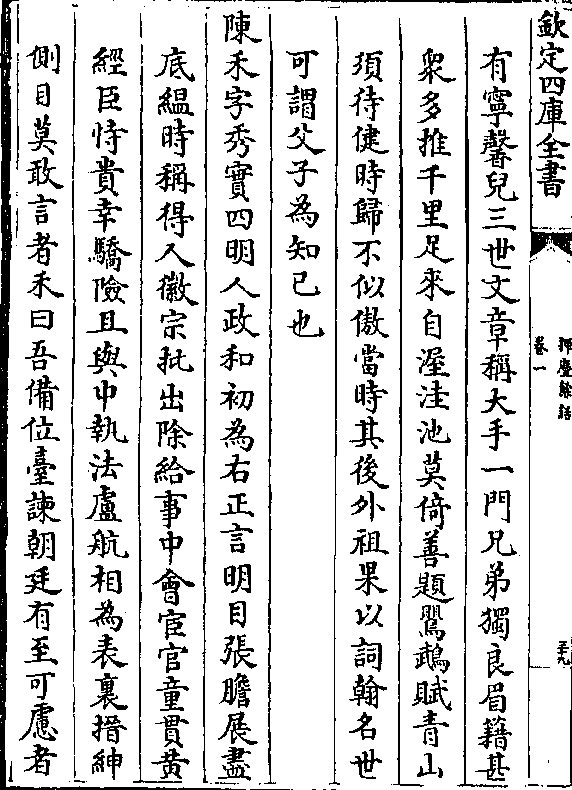 欽定四庫全書
捫蝨新話
卷一
有寧馨兒三世文章稱大手一門兄弟獨良眉籍甚
衆多推千里足來自渥洼池莫倚善題鸚鵡賦青山
須待健時歸不似傲當時其後外祖果以詞翰名世
可謂父子為知己也
陳禾字秀實四明人政和初為右正言明目張膽展盡
底緼時稱得人徽宗批出除給事中會宦官童貫黄
經臣恃貴幸驕險且與中執法盧航相為表裏搢紳
側目莫敢言者禾曰吾備位臺諫朝廷有至可慮者